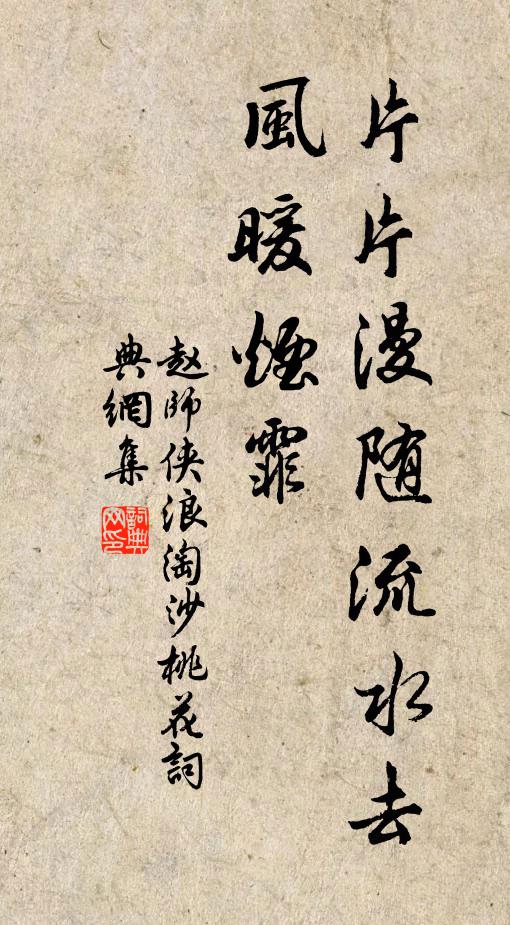 片片漫随流水去
風暖煙霏
赵師侠浪淘沙桃花詞
典網集
詞典网印